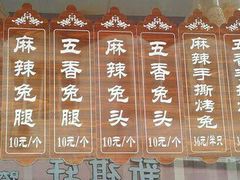 麻辣兔腿
10元/个
五香兔腿
10元/个
麻辣兔头
10元/个
五香兔头
10元/个
麻辣手撕烤兔
36元/半只